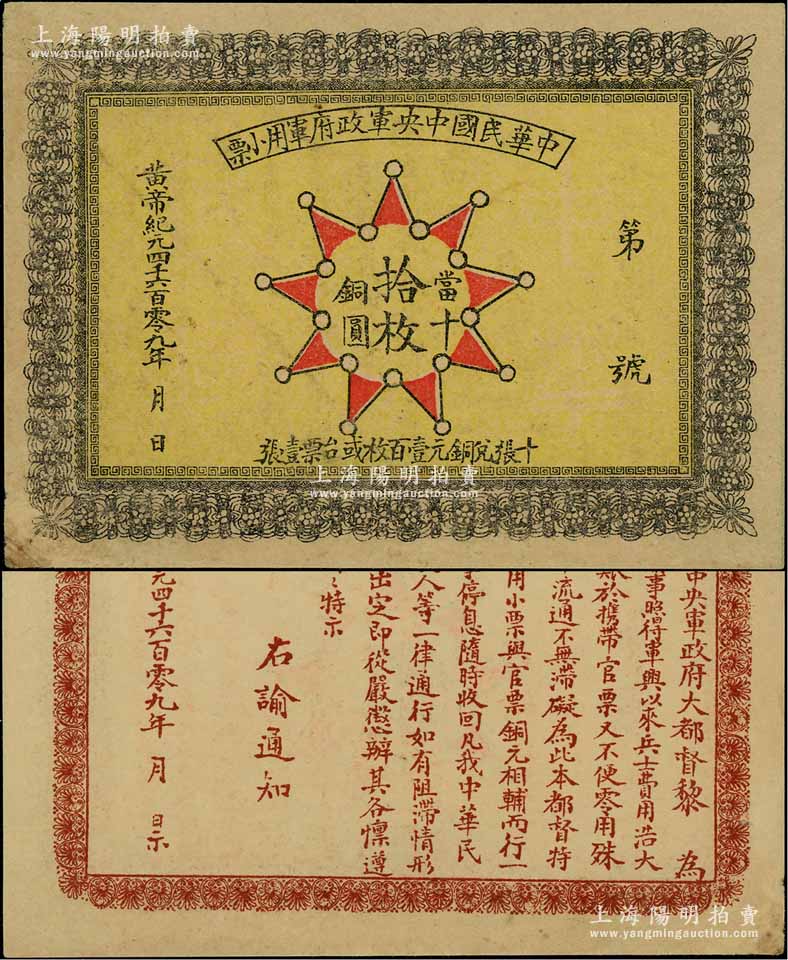 上海陽明拍賣
www.yangmingauction.com
上海陽明拍賣
www.yangmingauction.com
中華民國中央軍政府軍用小票
第 號
當十
拾枚
銅圓
黃帝紀元四千六百零九年 月 日
十張兌銅元壹百枚或台票壹張
上海陽明拍賣
www.yangmingauction.com
中央軍政府大都督黎 為
事照得軍興以來兵士費用浩大
於攜帶官票又不便零用殊
流通不無滯礙為此本都督特
用小票與官票銅元相輔而行一
停息隨時收回凡我中華民
人等一律通行如有阻滯情形
出定即從嚴懲辦其各懍遵
特示
右諭通知
元四千六百零九年 月 日示
上海陽明拍賣
www.yangmingauction.com